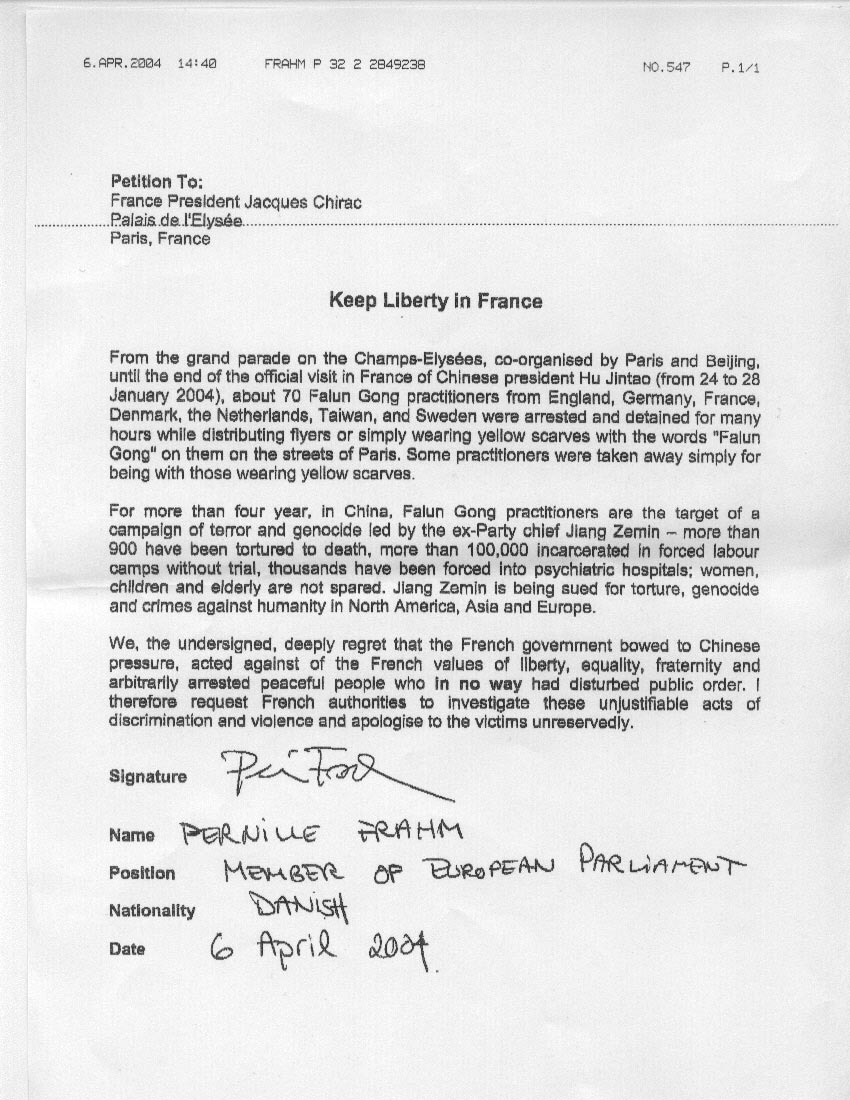 6.APR.2004 14:40 FRAHM P 32 2 2849238 NO.547 P.1/1
Petition To:
France President Jacques Chirac
Palais de l'Elysée
Paris, France
Keep Liberty in France
From the grand parade on the Champs-Elysées, co-organised by Paris and Beijing,
until the end of the official visit in France of Chinese president Hu Jintao (from 24 to 28
January 2004), about 70 Falun Gong practitioners from England, Germany, France,
Denmark, the Netherlands, Taiwan, and Sweden were arrested and detained for many
hours while distributing flyers or simply wearing yellow scarves with the words "Falun
Gong" on them on the streets of Paris. Some practitioners were taken away simply for
being with those wearing yellow scarves.
For more than four year, in China, Falun Gong practitioners are the target of a
campaign of terror and genocide led by the ex-Party chief Jiang Zemin – more than
900 have been tortured to death, more than 100,000 incarcerated in forced labour
camps without trial, thousands have been forced into psychiatric hospitals; women,
children and elderly are not spared. Jiang Zemin is being sued for torture, genocide
and crimes against humanity in North America, Asia and Europe.
We, the undersigned, deeply regret that the French government bowed to Chinese
pressure, acted against of the French values of liberty, equality, fraternity and
arbitrarily arrested peaceful people who in no way had disturbed public order. I
therefore request French authorities to investigate these unjustifiable acts of
discrimination and violence and apologise to the victims unreservedly.
Signature
Name PERNILLE FRAHM
Position MEMBER OF EUROPEAN PARLIAMENT
Nationality DANISH
Date 6 April 2004.